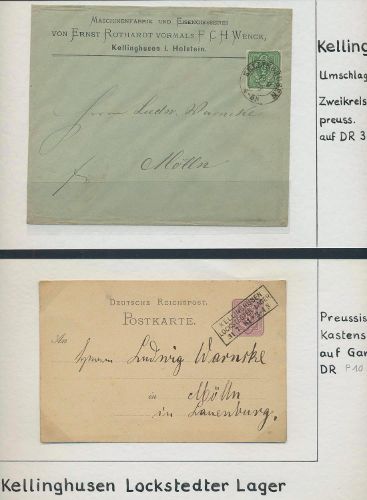 MASCHINENFABRIK UND EISENGIESSEREI
VON ERNST ROTHARDT VORMALS F. C. H. WENCK,
Kellinghusen i. Holstein.
Kelling
Umschlag
Zweikreis
preuss.
auf DR 3
Herrn Ludw. Warncke
Mölln
DEUTSCHE REICHSPOST.
POSTKARTE.
KELLINGHUSEN
An
Herrn Ludwig Warncke
in Mölln
in Lauenburg.
Preussis
Kastens
auf Gan
DR P10
Kellinghusen Lockstedter Lager